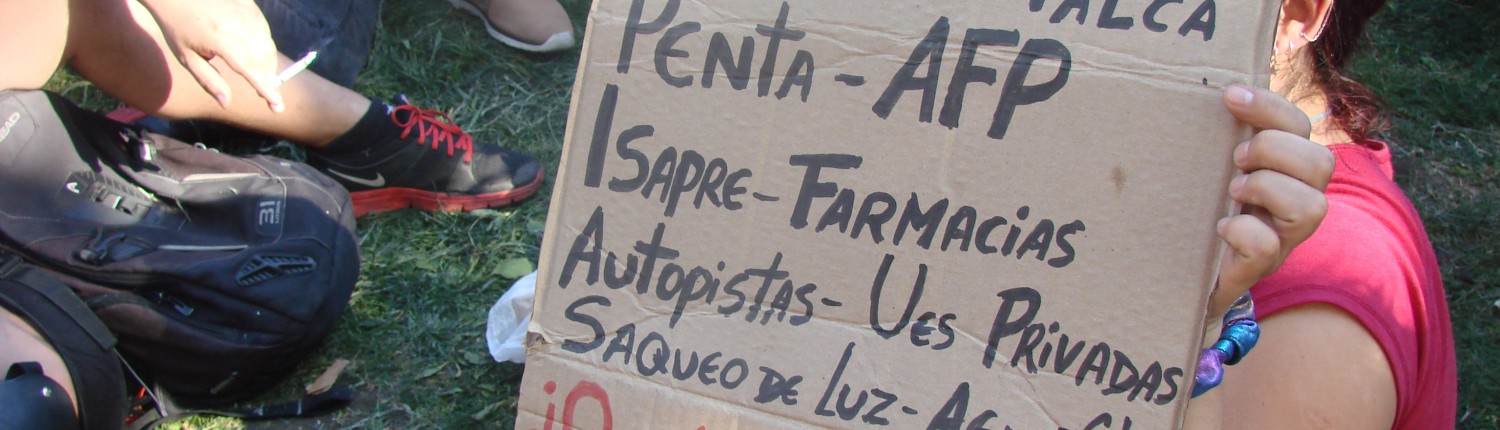 TALCA
PENTA - AFP
ISAPRE - FARMACIAS
AUTOPISTAS - UES PRIVADAS
SAQUEO DE LUZ -
31